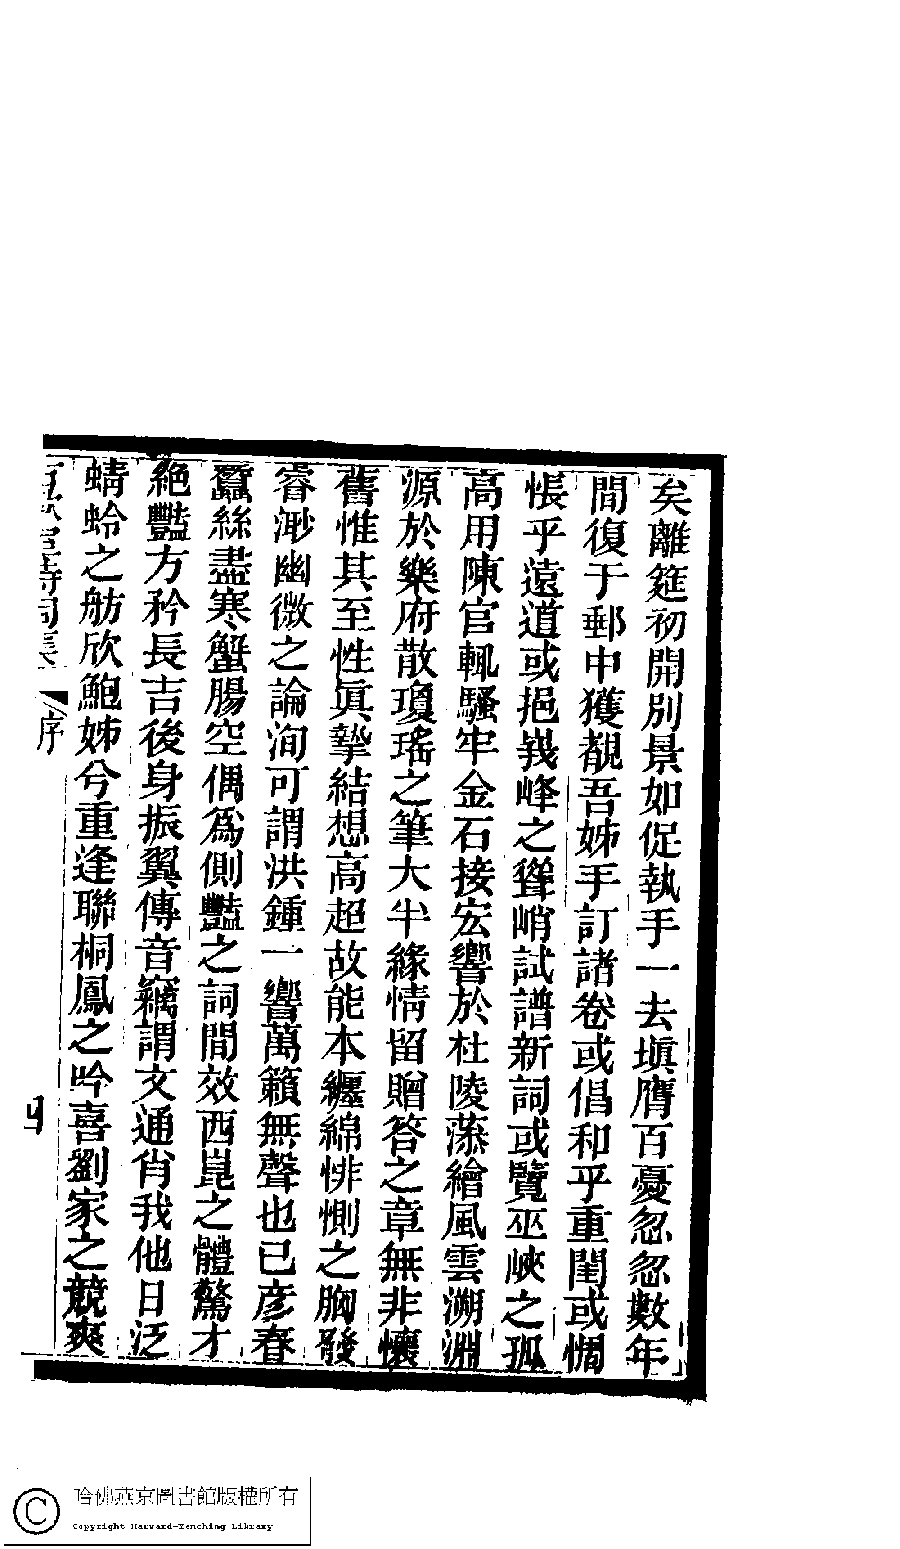 矣離筵初開別景如促執手一去塡膺百憂忽忽數年
間復于郵中獲覩吾姊手訂諸卷或倡和乎重闈或惆
悵乎遠道或挹峩峰之聳峭試譜新詞或覽巫峽之孤
高用陳官輒騷牢金石接宏響於杜陵藻繪風雲溯淵
源於樂府散瓊瑤之筆大半緣情留贈答之章無非懷
舊惟其至性眞摯結想高超故能本纒綿悱惻之胸發
睿渺幽微之論洵可謂洪鍾一響萬籟無聲也已彥春
蠶絲盡寒蟹腸空偶爲側豔之詞間效西崑之體驚才
絕豔方矜長吉後身振翼傳音竊謂文通肖我他日泛
蜻蛉之舫欣鮑姊兮重逢聯桐鳳之吟喜劉家之競爽
詩詞集
序
四
哈佛燕京圖書館版權所有
Copyright Harvard-Yenching Library